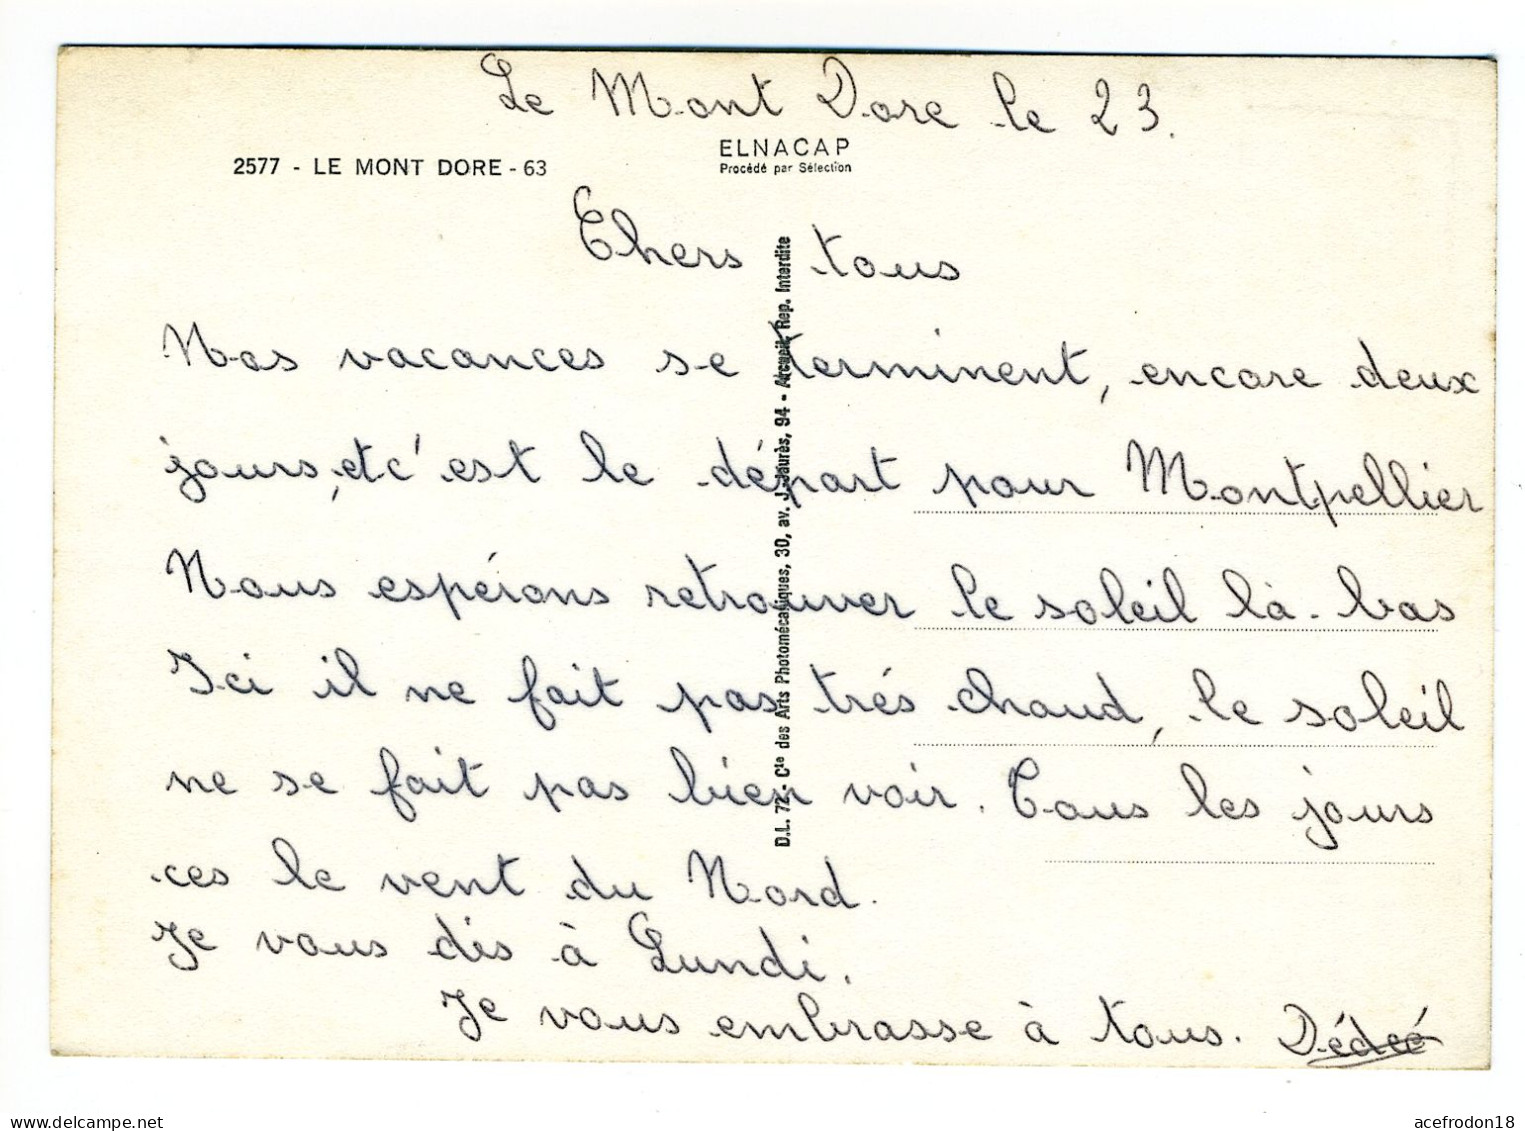 Le Mont Dore le 23.
ELNACAP
Procédé par Sélection
2577 - LE MONT DORE - 63
Chers tous
Nos vacances se terminent, encore deux
jours, et c'est le départ pour Montpellier
Nous espérons retrouver le soleil là-bas
Ici il ne fait pas trés chaud, le soleil
ne se fait pas bien voir. Tous les jours
ces le vent du Nord.
Je vous dis à Lundi.
Je vous embrasse à tous. Dédée
D.L. 72 - Cie des Arts Photomécaniques, 30, av. J. Jaurès, 94 - Arcueil, Rep. Interdite
acefrodon18